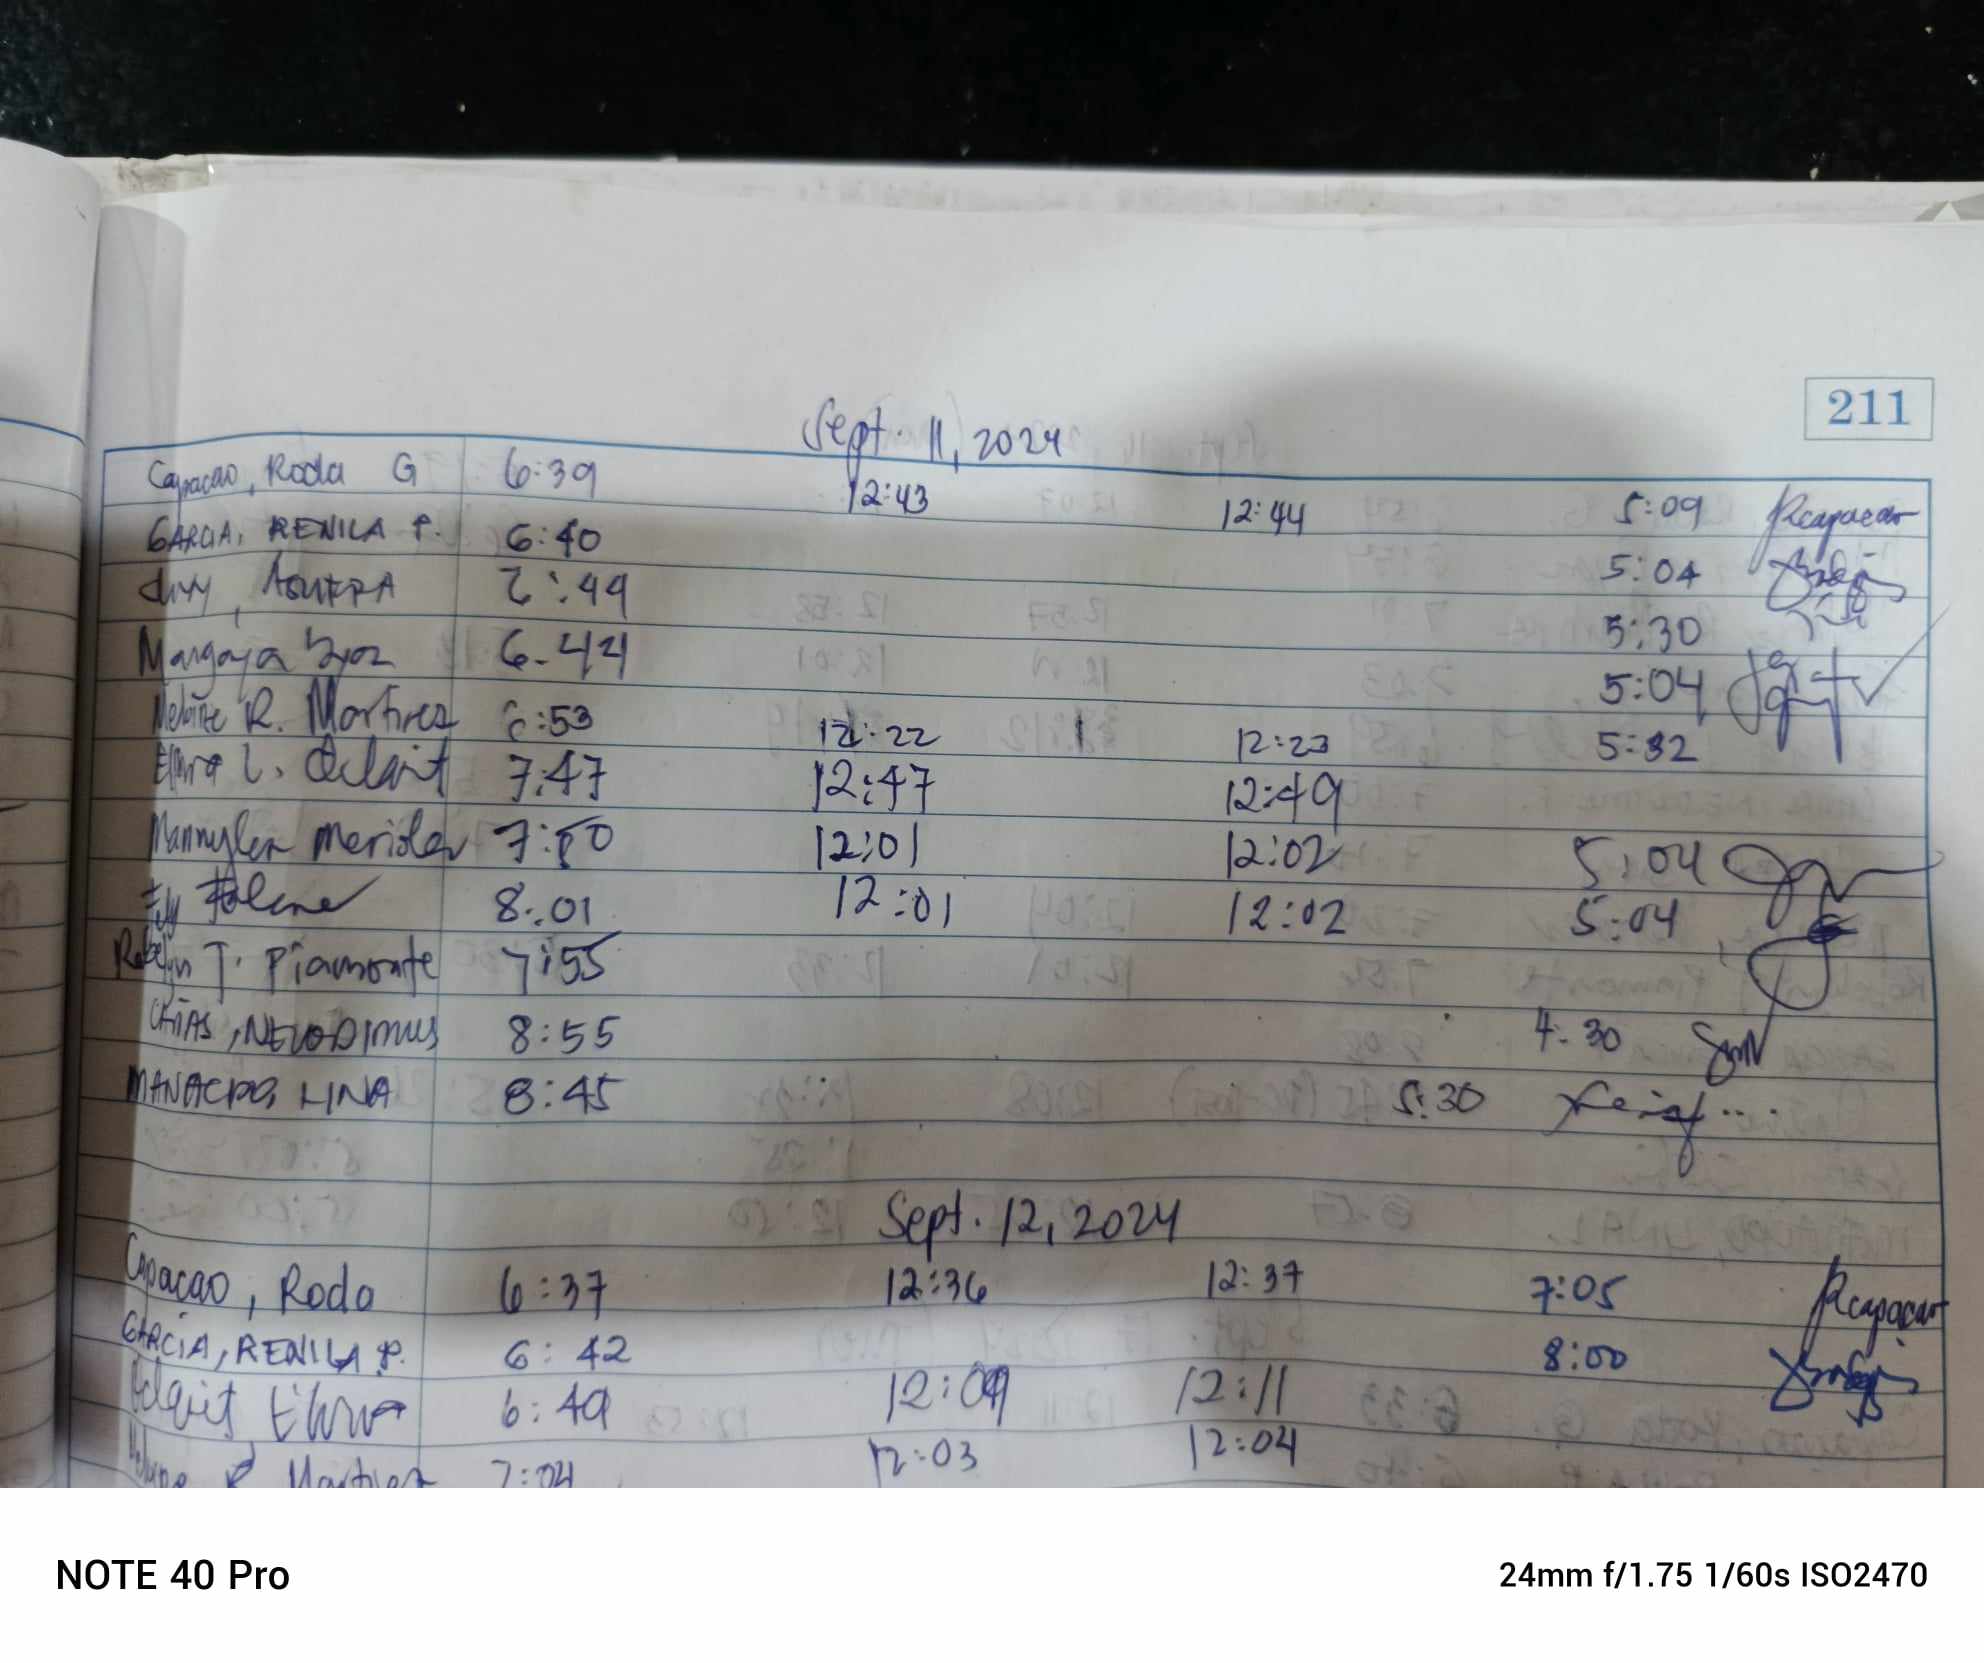 211
Sept. 11, 2024
Capacao, Roda G 6:39 12:43 12:44 5:09 Rcapacao
GARCIA, RENILA P. 6:40 5:04
6:44 5:30
Margaja 6-44 5:04
Melanie R. Martirez 6:53 12:22 12:23 5:32
Elvira L. Adlait 7:47 12:47 12:49
Mannylen Meriales 7:50 12:01 12:02 5:04
8:01 12:01 12:02 5:04
Robelyn T. Piamonte 7:55
, NEVODIMUS 8:55 4:30
MANACPO, LINA 8:45 5:30
Sept. 12, 2024
Capacao, Roda 6:37 12:36 12:37 7:05 Rcapacao
GARCIA, RENILA P. 6:42 8:00
Adlait Elvira 6:49 12:09 12:11
R Martirez 7:04 12:03 12:04
NOTE 40 Pro 24mm f/1.75 1/60s ISO2470